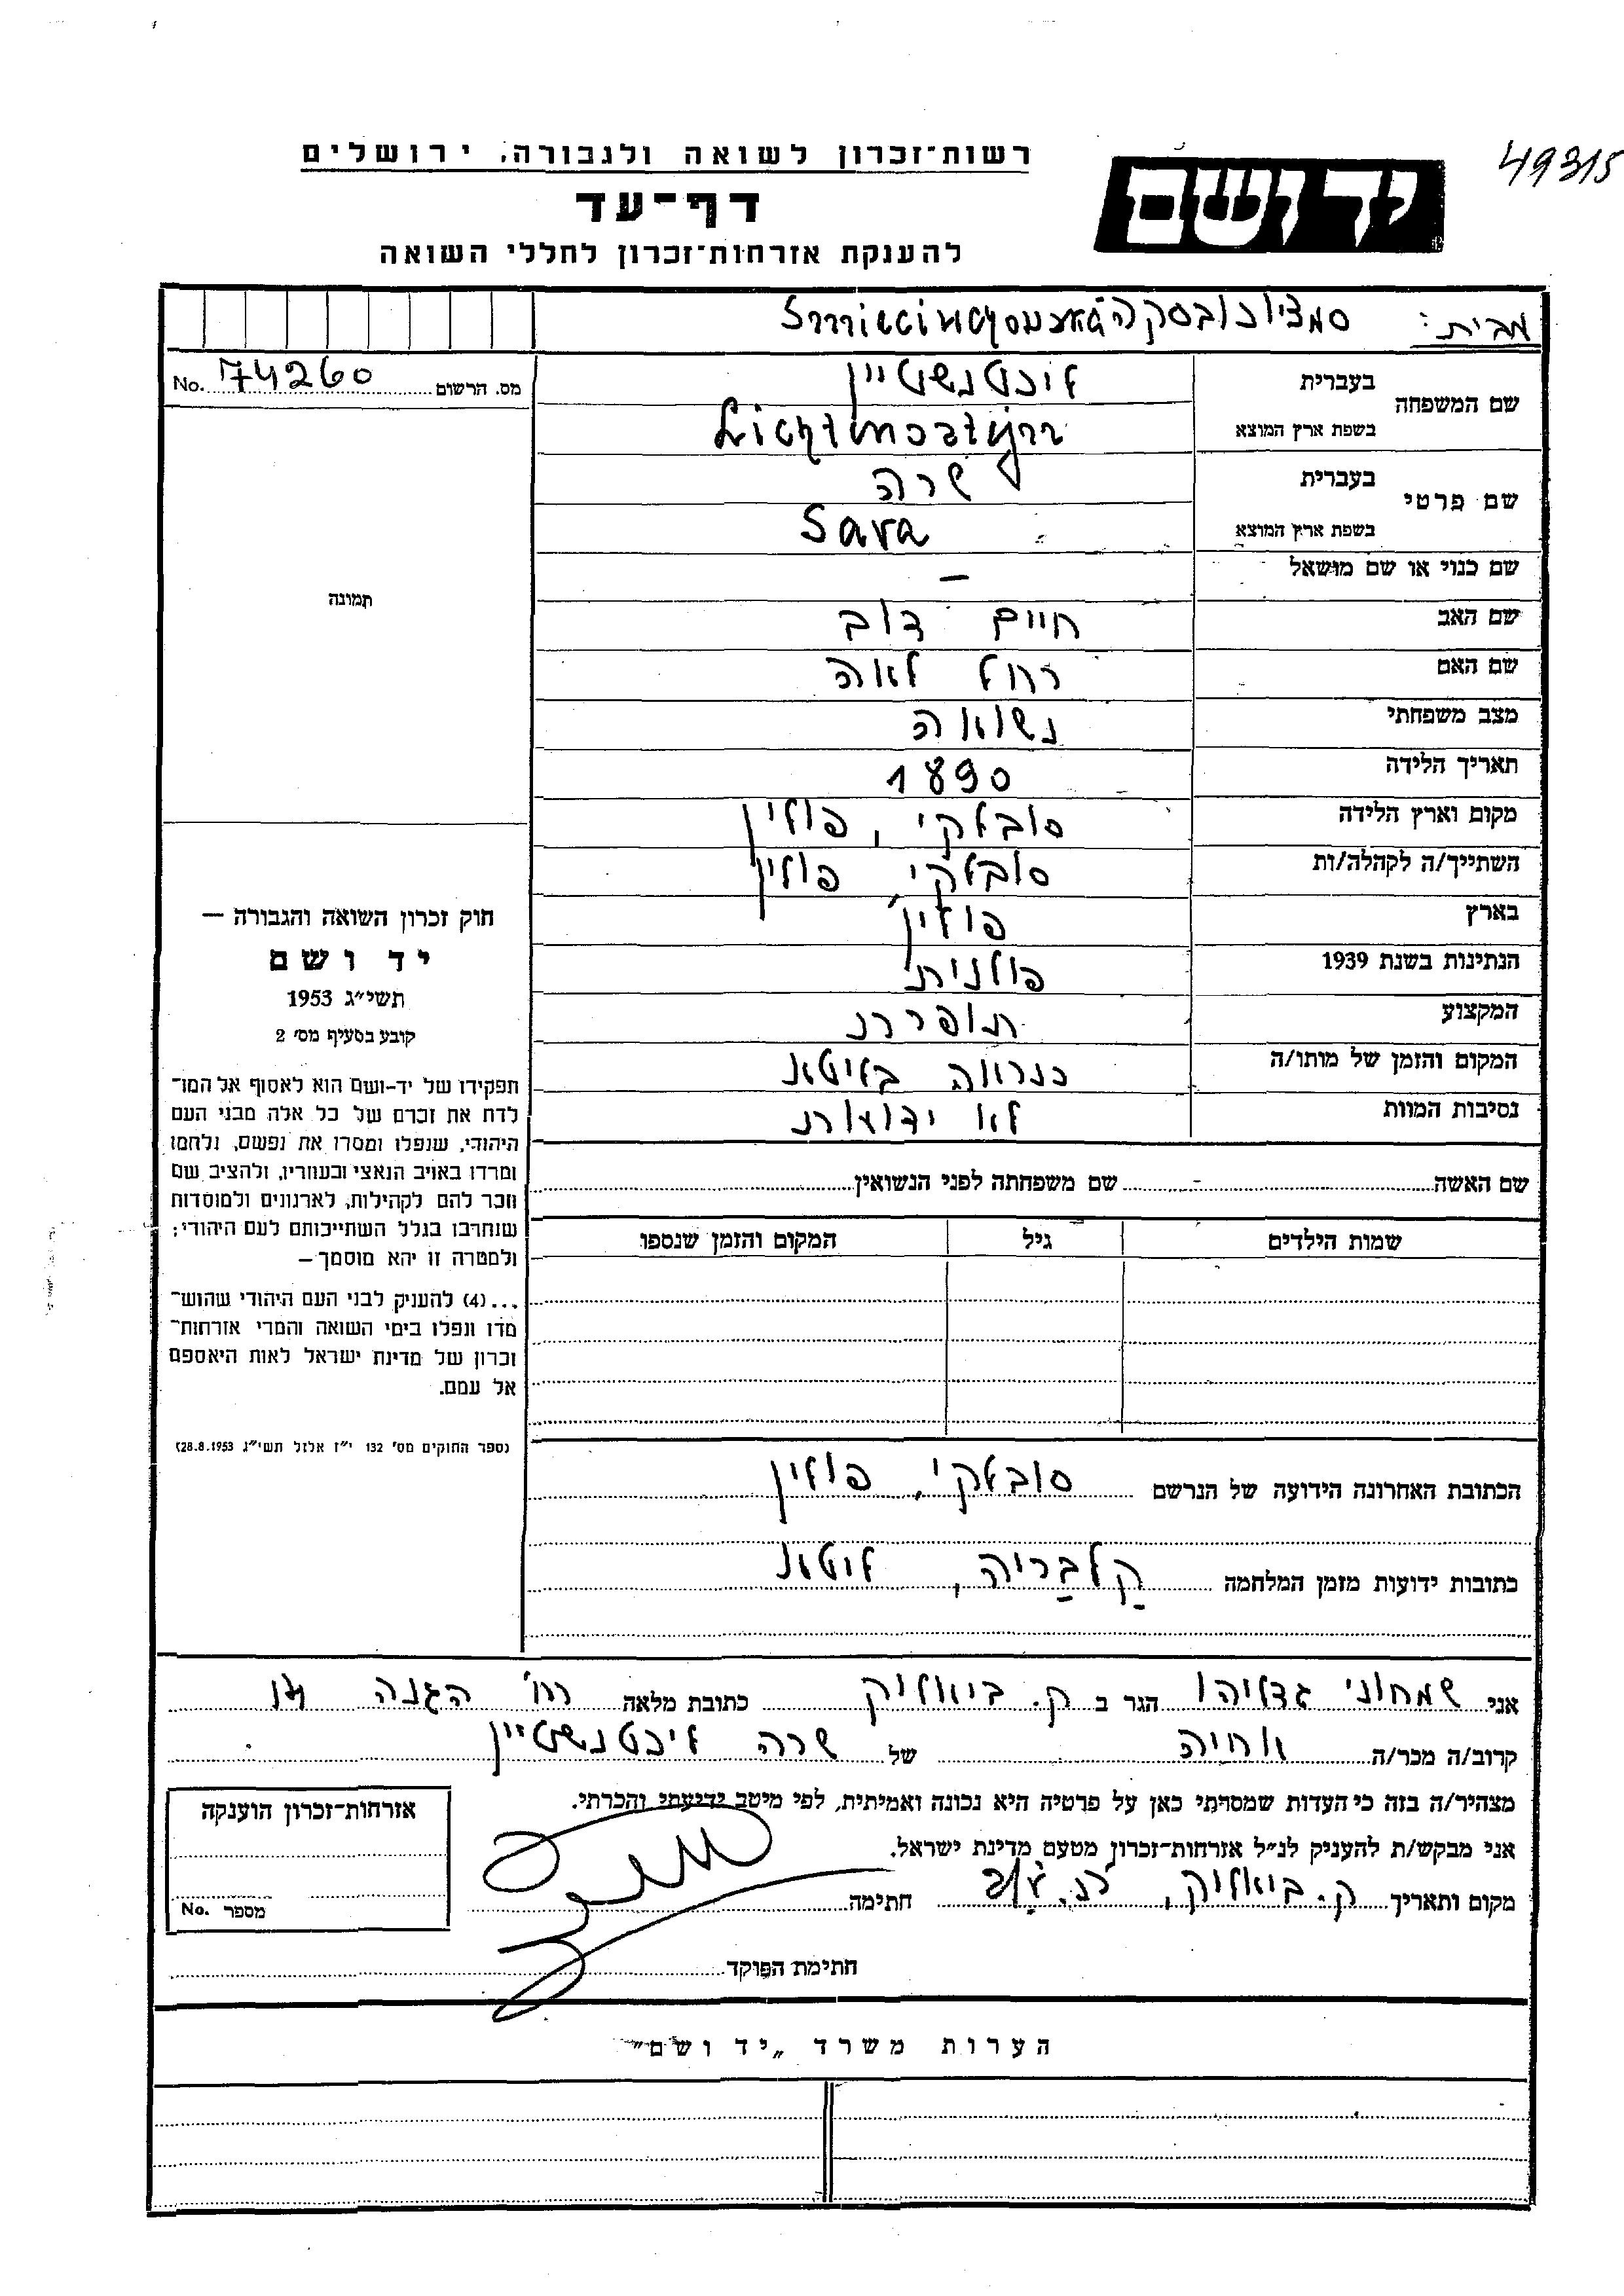 49315
רשות־זכרון לשואה ולגבורה, ירושלים
יד ושם
דף־עד
להענקת אזרחות־זכרון לחללי השואה
מבית:
מס. הרשום 74260 No.
שם המשפחה בעברית ליכטנשטיין
בשפת ארץ המוצא
שם פרטי בעברית שרה
בשפת ארץ המוצא Sara
שם כנוי או שם מושאל –
שם האב חיים דוב
שם האם רחל לאה
מצב משפחתי נשואה
תאריך הלידה 1890
מקום וארץ הלידה סובלקי, פולין
השתייך/ה לקהלה/ות סובלקי, פולין
בארץ פולין
הנתינות בשנת 1939 פולנית
המקצוע תופרת
המקום והזמן של מותו/ה כנראה בליטא
נסיבות המוות לא ידועות
תמונה
חוק זכרון השואה והגבורה —
יד ושם
תשי״ג 1953
קובע בסעיף מס׳ 2
תפקידו של יד-ושם הוא לאסוף אל המו־
לדת את זכרם של כל אלה מבני העם
היהודי, שנפלו ומסרו את נפשם, נלחמו
ומרדו באויב הנאצי ובעוזריו, ולהציב שם
וזכר להם לקהילות, לארגונים ולמוסדות
שנחרבו בגלל השתייכותם לעם היהודי;
ולמטרה זו יהא מוסמך —
...(4) להעניק לבני העם היהודי שהוש־
מדו ונפלו בימי השואה והמרי אזרחות־
זכרון של מדינת ישראל לאות היאספם
אל עמם.
(ספר החוקים מס׳ 132 י״ז אלול תשי״ג 28.8.1953)
שם האשה – שם משפחתה לפני הנשואין
שמות הילדים גיל המקום והזמן שנספו
הכתובת האחרונה הידועה של הנרשם סובלקי, פולין
כתובות ידועות מזמן המלחמה קלבריה, ליטא
אני שמחוני גדליהו הגר ב ק. ביאליק כתובת מלאה רח׳ הגנה
קרוב/ה מכר/ה של שרה ליכטנשטיין
מצהיר/ה בזה כי העדות שמסרתי כאן על פרטיה היא נכונה ואמיתית, לפי מיטב ידיעתי והכרתי.
אני מבקש/ת להעניק לנ״ל אזרחות־זכרון מטעם מדינת ישראל.
מקום ותאריך ק. ביאליק, חתימה
חתימת הפוקד
אזרחות־זכרון הוענקה
מספר No.
הערות משרד „יד ושם״